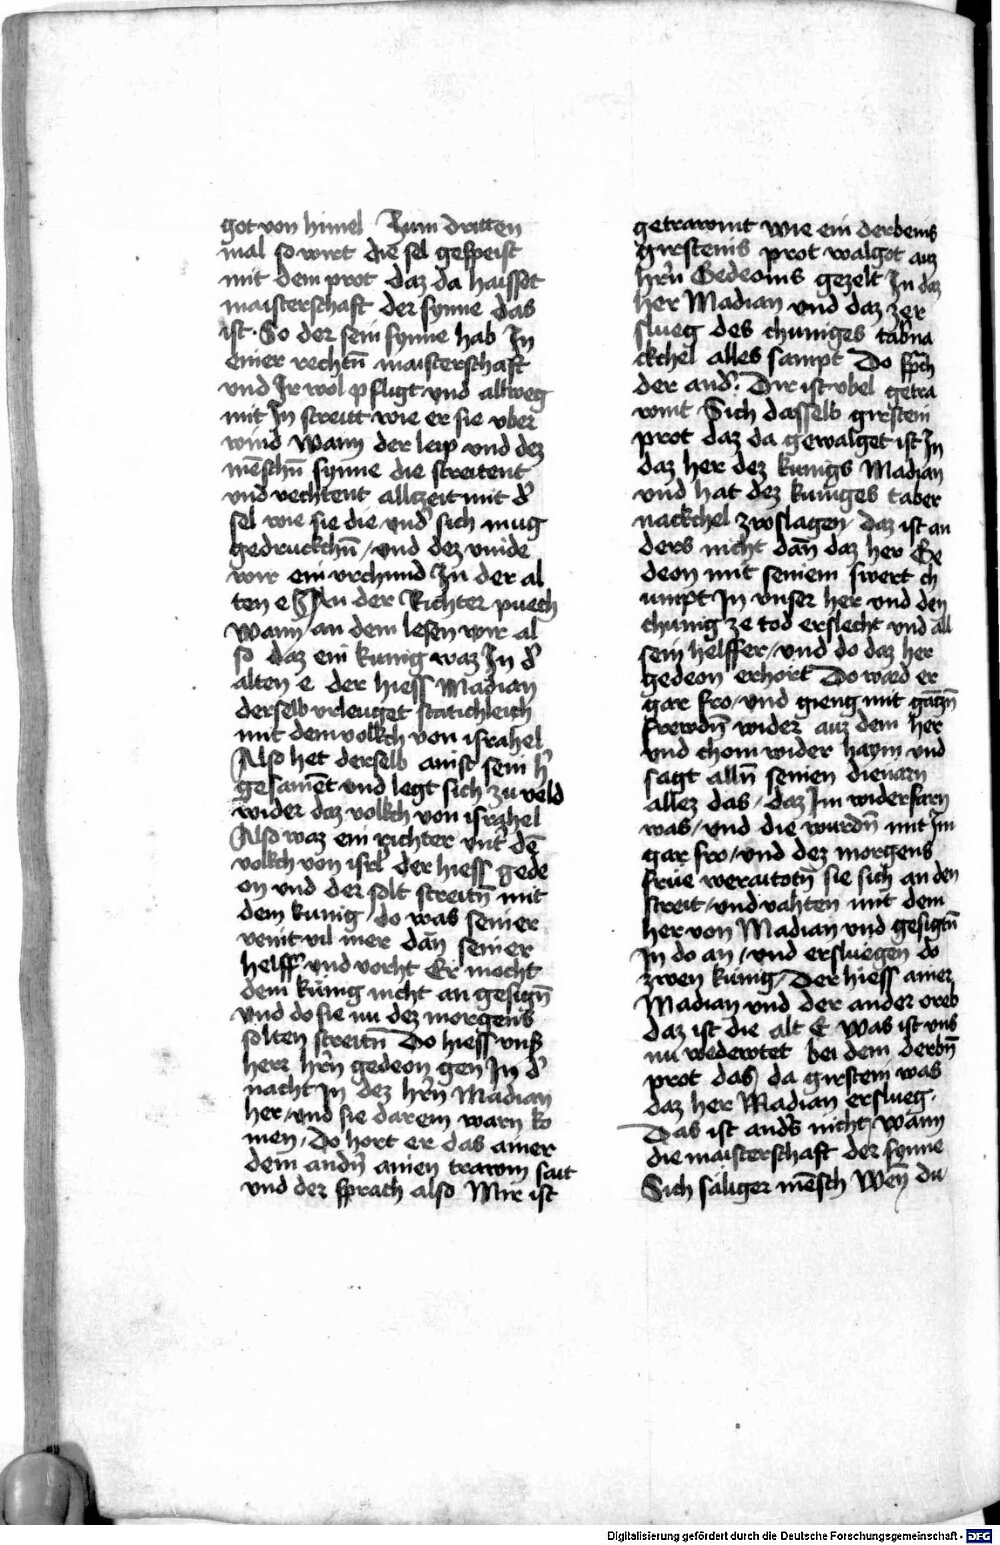 got von himel Zum dritten
mal so wirt die sel gespeist
mit dem prot daz da haisset
maisterschaft der synne das
ist. So der sein synne hab In
einer rechtn̄ maisterschaft
vnd Ir wol pfligt vnd allweg
mit In streitt wie er sie vber
wind Wann der leip vnd dez
mēschn̄ synne die streitent
vnd vechtent allczeit mit d̓
sel wie sie die vnd̓ sich mug
gedruckchn̄ / vnd dez vinde
wir ein vrchund In der al
ten e An der Richter puech
Wann an dem lesen wir al
so daz ein kunig waz In d̓
alten e der hiess Madian
derselb vrleuget statichleich
mit dem volkch von israhel
Also het derselb ainst sein h̓
gesamēt vnd legt sich zu veld
wider daz volkch von israhel
Also waz ein richter vnt̓ dē
volkch von isrl̓ der hiess gede
on vnd der solt streitn̄ mit
dem kunig / do was seiner
veint vil mer dān seiner
helff vnd vorht Er mocht
dem künig nicht an gesign̄
vnd do sie nu dez morgens
solten streitn̄ Do hiess vnß
herr hr̄n gedeon gen In d̓
nacht In dez hr̄n Madian
her / vnd sie darein warn ko
men / Do hort er das ainer
dem andn̄ ainen trawm sait
vnd der sprach also Mir ist
getrawmt wie ein derbeins
girsteins prot walget auz
hr̄n Gedeoins gezelt In daz
her Madian vnd daz zer
slueg des chuniges tab̓na
ckchel alles sampt Do sp̄ch
der and̓. Dir ist vbel getra
wmt Sich dasselb girstein
prot daz da gewalget ist In
daz her dez kunigs Madian
vnd hat dez kuniges taber
nackchel zwslagen / daz ist an
ders nicht dān daz her Ge
deon mit seinem swert ch
umpt In vnser her vnd den
chunig ze tod erslecht vnd all
sein helffer / vnd do daz her
gedeon erhört Do ward er
gar fro / vnd gieng mit gāczn̄
frewdn̄ wider auz dem her
vnd chom wider haym vnd
sagt alln̄ seinen dienarn
allez das / daz Im widerfarn
was / vnd die wurdn̄ mit Im
gar fro / vnd dez morgens
früe weraitotn̄ sie sich an den
streit / vnd vahten mit dem
her von Madian vnd gesigtn̄
In do an / vnd ersluegen do
zwen künig / Der hiess ainer
Madian vnd der ander oreb
daz ist die alt E Was ist vns
nu wedewtet bei dem derbn̄
prot das da girstein was
daz her Madian erslueg.
Das ist and̓s nicht / wann
die maisterschaft der synne
Sich säliger mēsch Wen̄ du
Digitalisierung gefördert durch die Deutsche Forschungsgemeinschaft - DFG